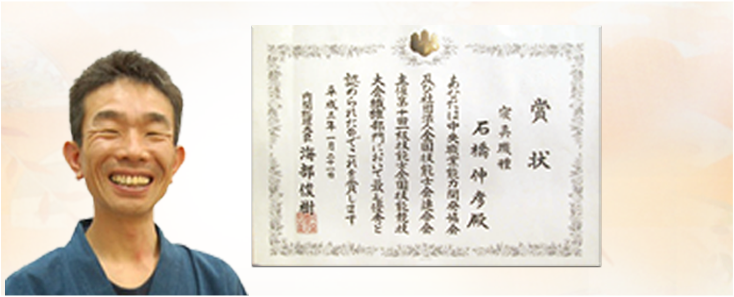 賞状
寝具職種
石橋伸彦殿
あなたは中央職業能力開発協会
及び社団法人全国技能士会連合会
主催第十回一級技能士全国技能競技
大会職種部門において最も優秀と
認められたのでこれを賞します
平成三年一月二十一日
内閣総理大臣 海部俊樹